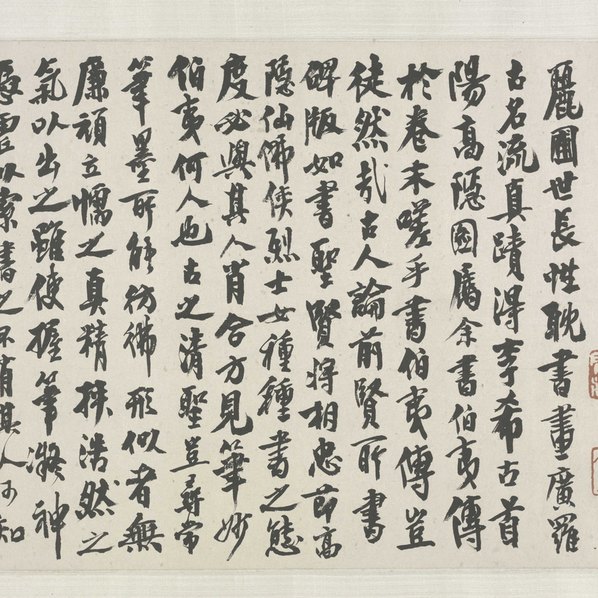 麗圃世長性耽書畫廣羅
古名流真蹟得李希古首
陽高隱圖屬余書伯夷傳
於卷末嗟乎書伯夷傳豈
徒然哉古人論前賢所書
碑版如書聖賢將相忠節高
隱仙佛俠烈士女種種書之態
度必與其人肖合方見筆妙
伯夷何人也古之清聖豈尋常
筆墨所能彷彿形似者無
廉頑立懦之真精挾浩然之
氣以出之雖使握筆凝神
書之不肖其人可知